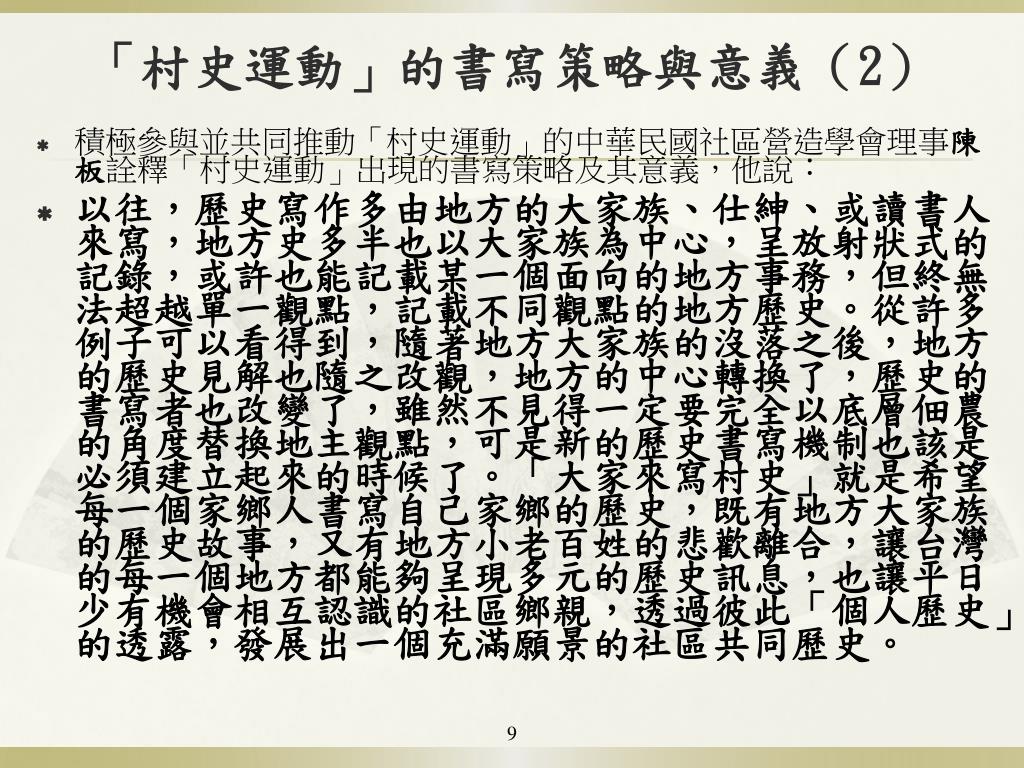 「村史運動」的書寫策略與意義（2）
積極參與並共同推動「村史運動」的中華民國社區營造學會理事陳
板詮釋「村史運動」出現的書寫策略及其意義，他說：
以往，歷史寫作多由地方的大家族、仕紳、或讀書人
來寫，地方史多半也以大家族為中心，呈放射狀式的
記錄，或許也能記載某一個面向的地方事務，但終無
法超越單一觀點，記載不同觀點的地方歷史。從許多
例子可以看得到，隨著地方大家族的沒落之後，地方
的歷史見解也隨之改觀，地方的中心轉換了，歷史的
書寫者也改變了，雖然不見得一定要完全以底層佃農
的角度替換地主觀點，可是新的歷史書寫機制也該是
必須建立起來的時候了。「大家來寫村史」就是希望
每一個家鄉人書寫自己家鄉的歷史，既有地方大家族
的歷史故事，又有地方小老百姓的悲歡離合，讓台灣
的每一個地方都能夠呈現多元的歷史訊息，也讓平日
少有機會相互認識的社區鄉親，透過彼此「個人歷史」
的透露，發展出一個充滿願景的社區共同歷史。
9